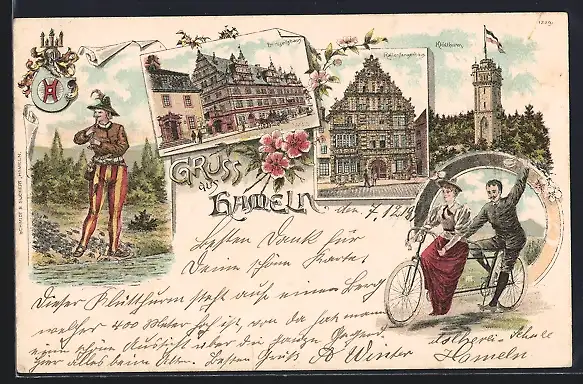 1239.
Hochzeitshaus
Rattenfängerhaus
Klütthurm.
Gruss
aus
Hameln.
den 7.12.
Besten Dank für
Deine schöne Karte
Dieser Klüttthurm steht auf einem Berg
welcher 400 Meter hoch ist, von da hat man
eine schöne Aussicht über die ganze Gegend.
hier Alles beim Alten. Besten Gruß R Winter
Hameln